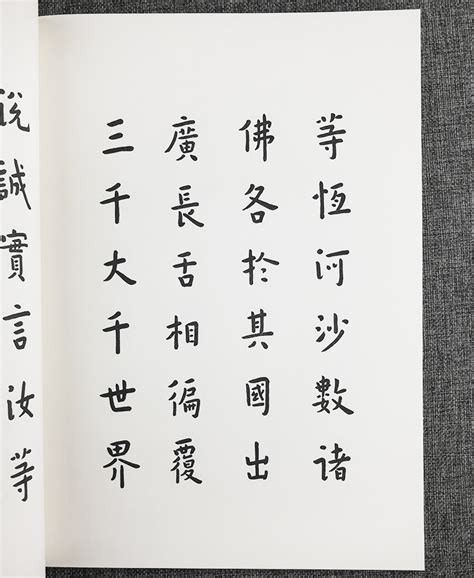 等恆河沙數諸
佛各於其國出
廣長舌相徧覆
三千大千世界
説誠實言汝等